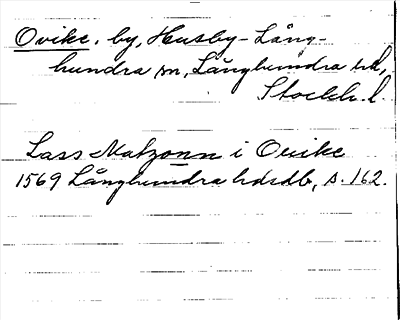 Ovike. by, Husby-Lång-
hundra sn, Långhundra hd,
Stockh. l.
Lass Matzonn i Ovike
1569 Långhundra hdsdb, s. 162.